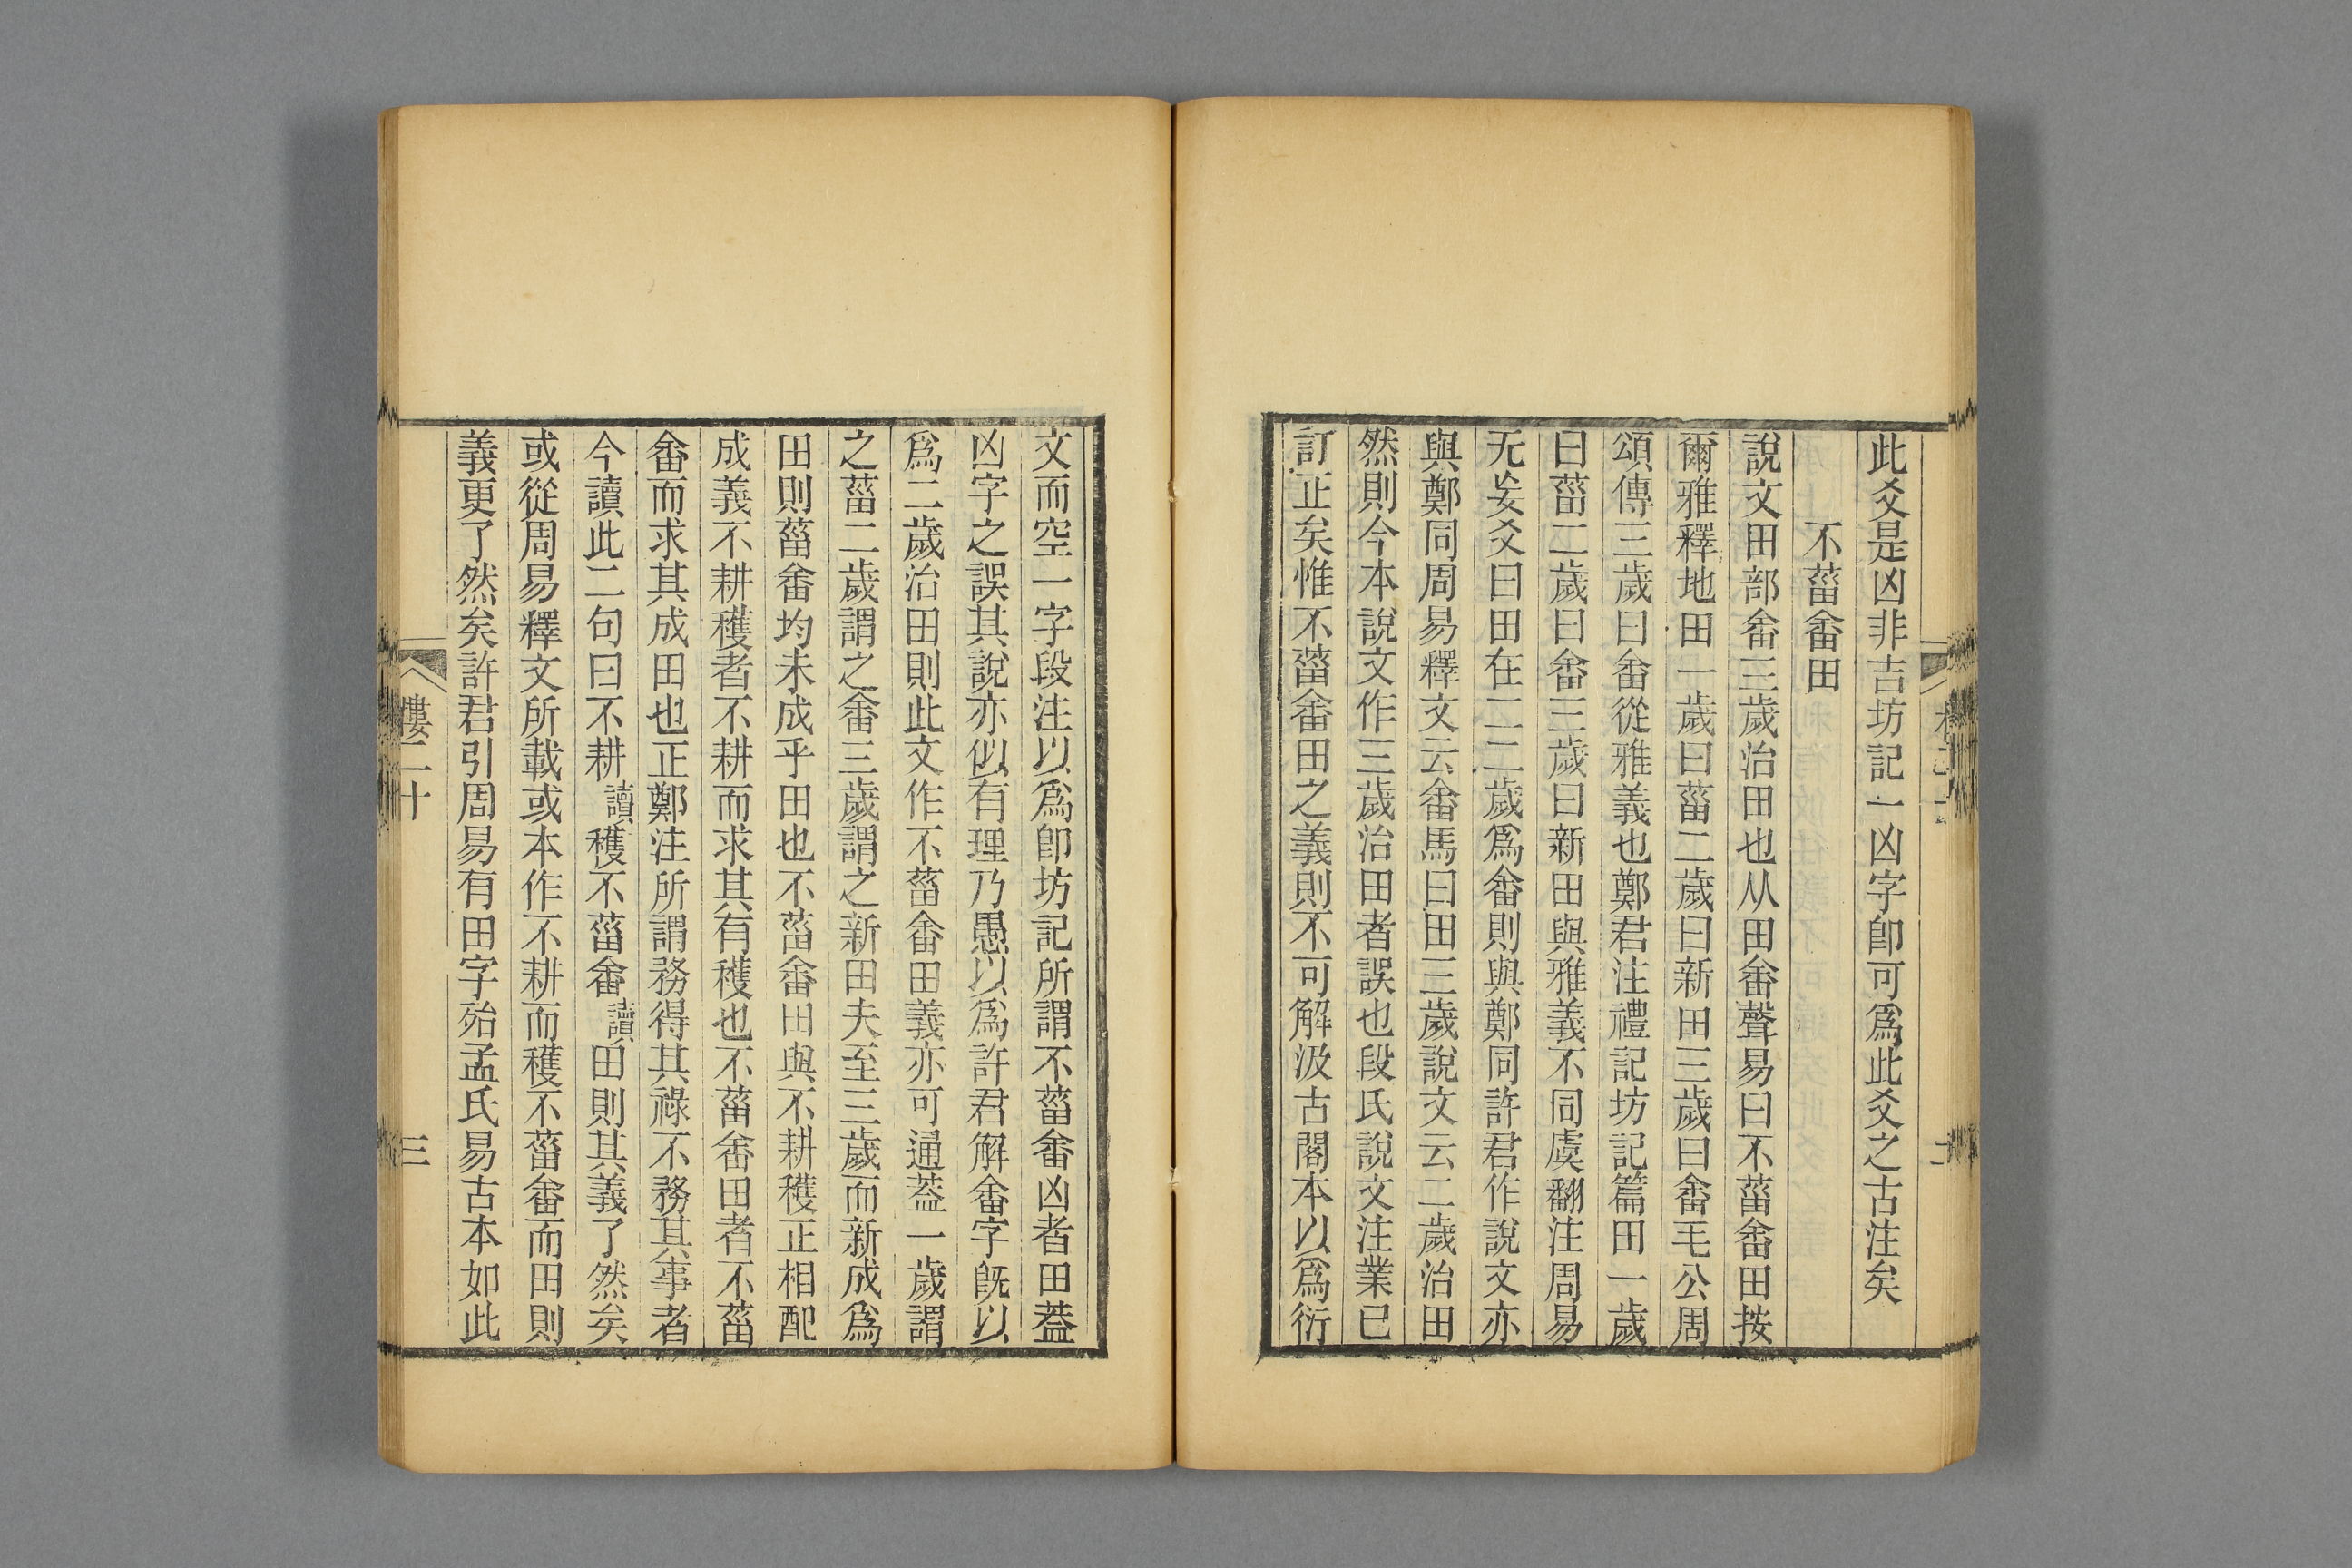 此爻是凶非吉坊記一凶字卽可爲此爻之古注矣
不菑畬田
說文田部畬三歲治田也从田畬聲易曰不菑畬田按
爾雅釋地田一歲曰菑二歲曰新田三歲曰畬毛公周
頌傳三歲曰畬從雅義也鄭君注禮記坊記篇田一歲
曰菑二歲曰畬三歲曰新田與雅義不同虞翻注周易
无妄爻曰田在二二歲爲畬則與鄭同許君作說文亦
與鄭同周易釋文云畬馬曰田三歲說文云二歲治田
然則今本說文作三歲治田者誤也段氏說文注業已
訂正矣惟不菑畬田之義則不可解汲古閣本以爲衍
文而空一字段注以爲卽坊記所謂不菑畬凶者田葢
凶字之誤其說亦似有理乃愚以爲許君解畬字旣以
爲二歲治田則此文作不菑畬田義亦可通葢一歲謂
之菑二歲謂之畬三歲謂之新田夫至三歲而新成爲
田則菑畬均未成乎田也不菑畬田與不耕穫正相配
成義不耕穫者不耕而求其有穫也不菑畬田者不菑
畬而求其成田也正鄭注所謂務得其祿不務其事者
今讀此二句曰不耕讀穫不菑畬讀田則其義了然矣
或從周易釋文所載或本作不耕而穫不菑畬而田則
義更了然矣許君引周易有田字殆孟氏易古本如此
樓二十
三